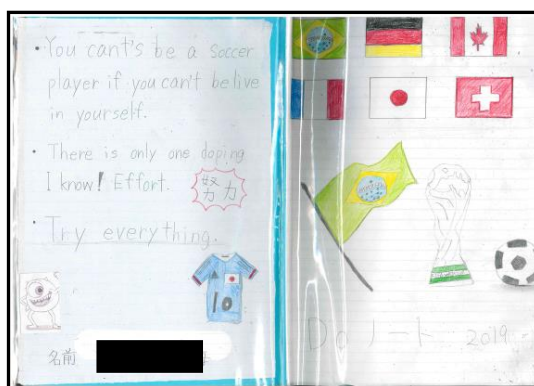 • You cant's be a soccer
player if you can't be live
in yourself.
• There is only one doping
I know! Effort.
努力
• Try everything.
10
名前
Do ノート 2019